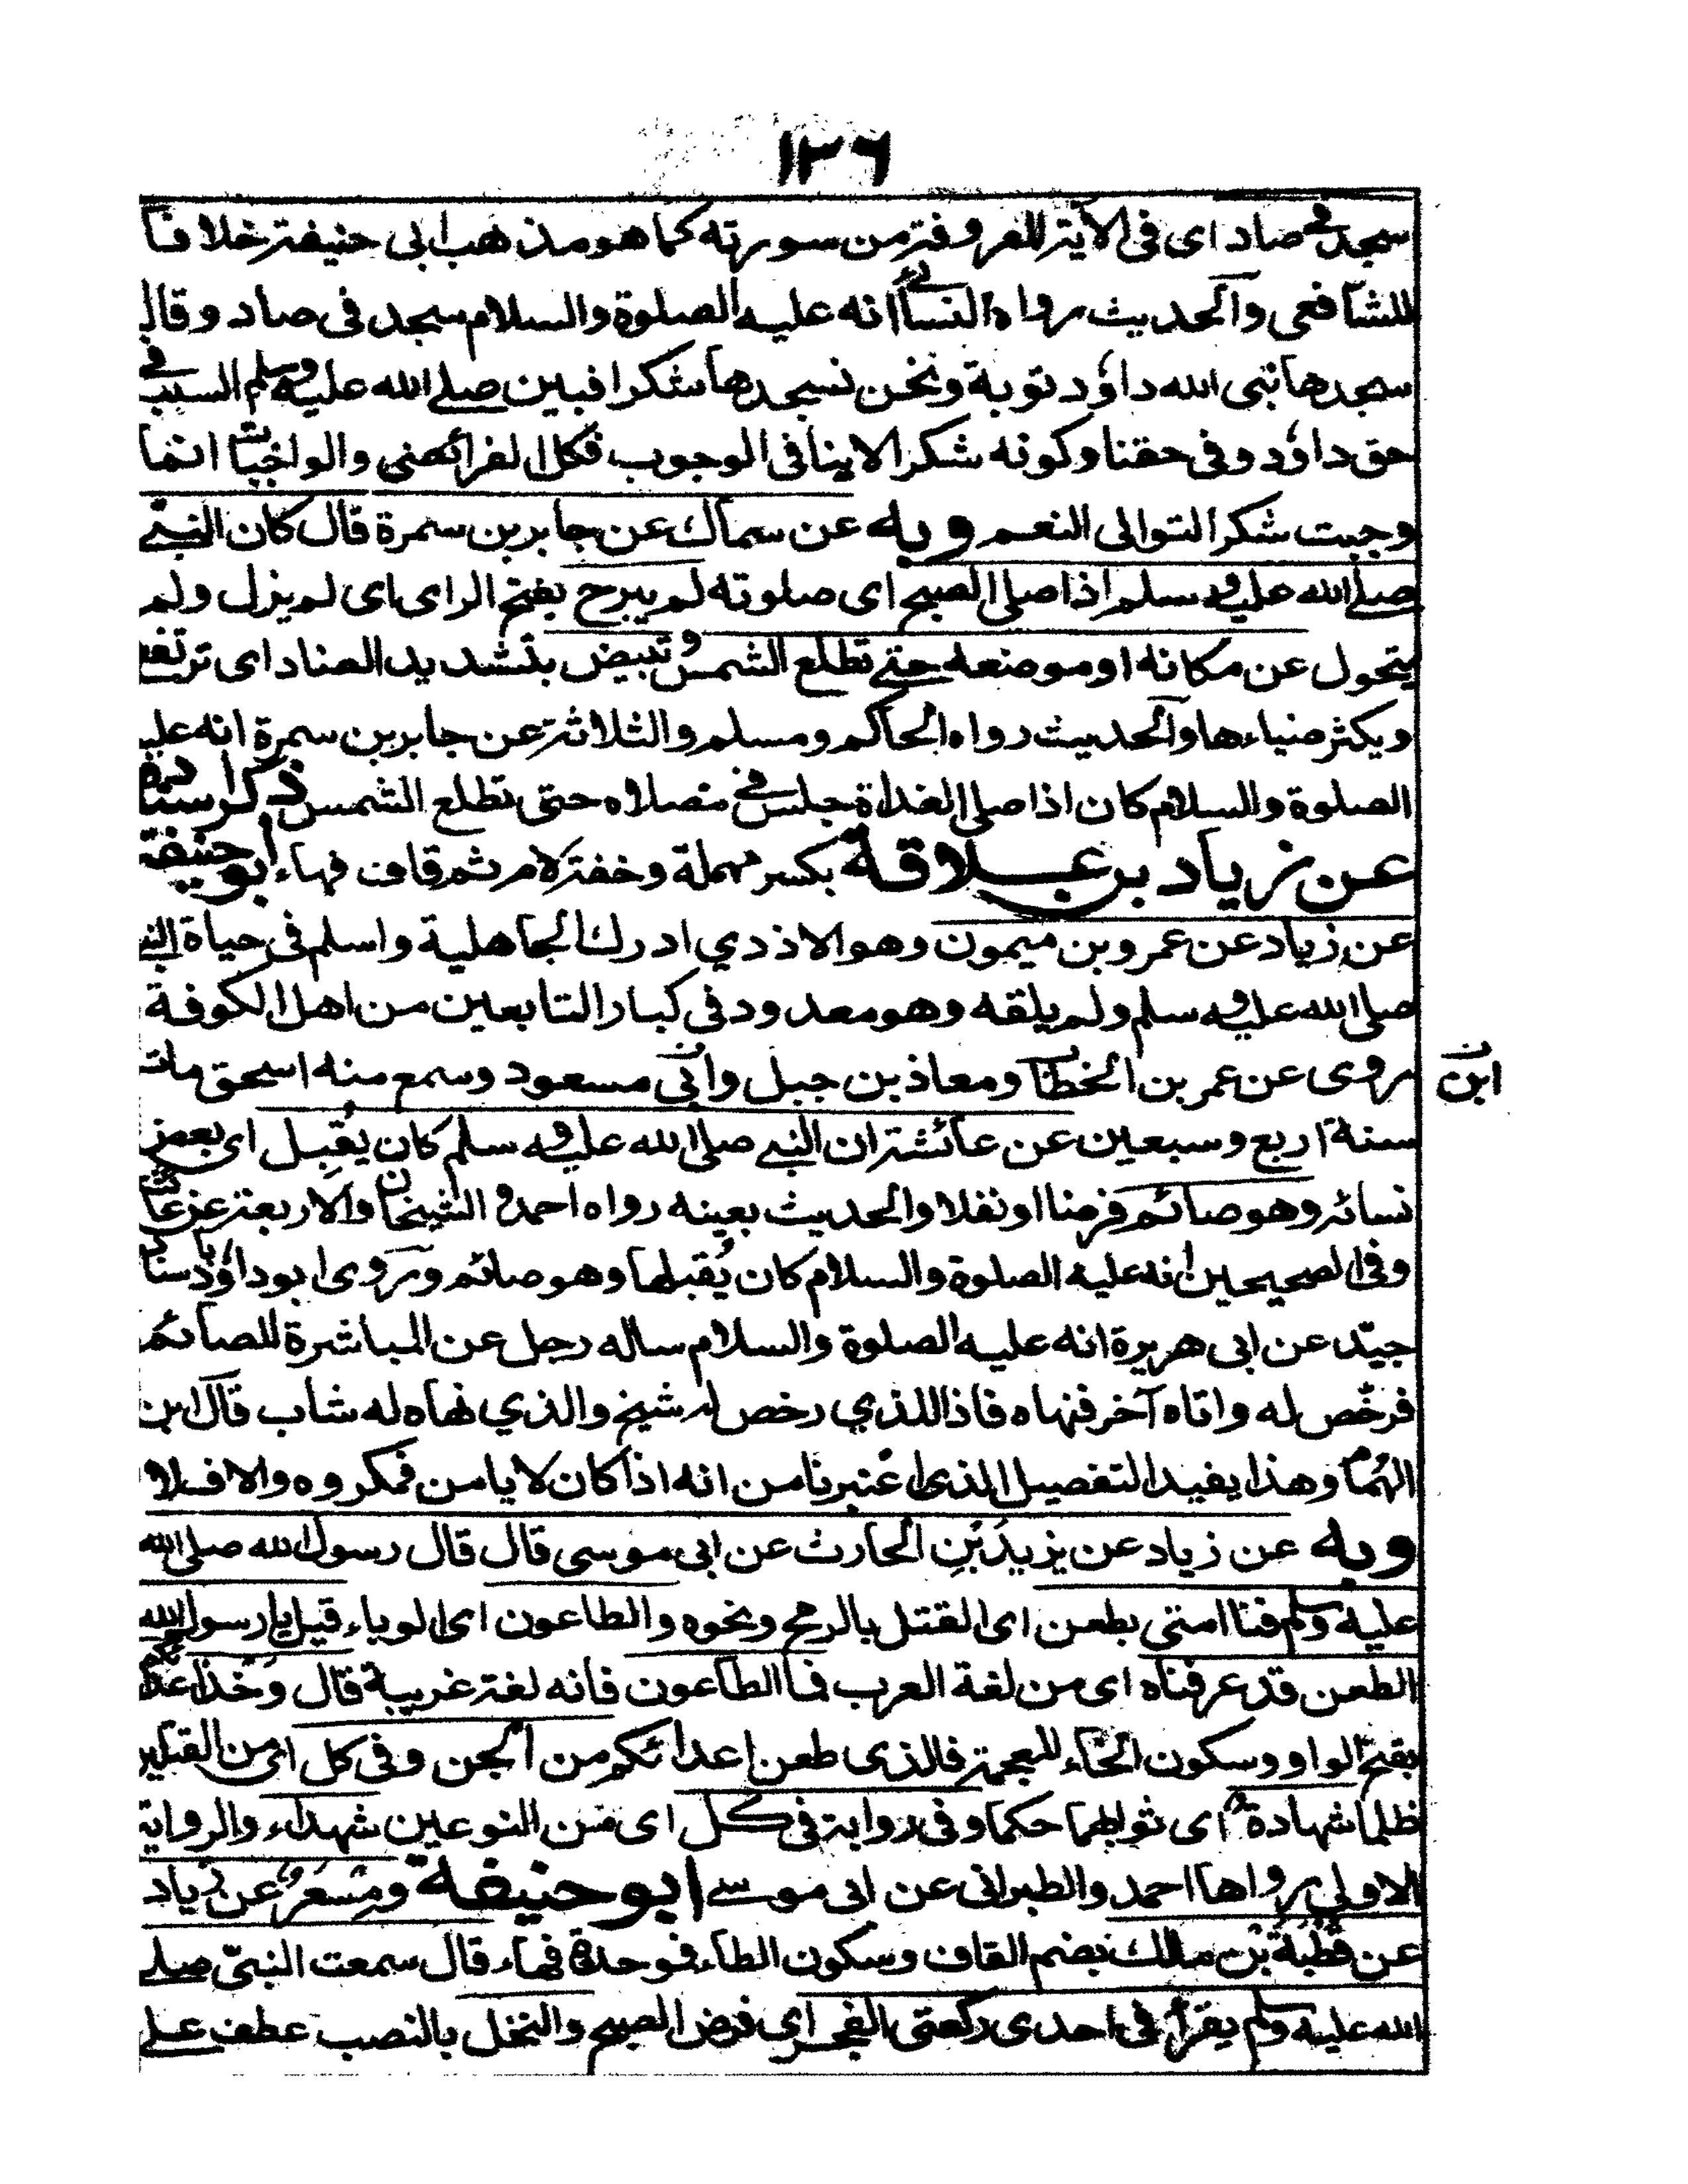 ١٣٦
سجد في صاد اى فى الآية المعروفة من سورته كما هو مذهب ابى حنيفة خلافا
للشافعى والحديث رواه النسائى انه عليه الصلوة والسلام سجد فى صاد وقال
سجدها نبى الله داؤد توبة ونحن نسجدها شكرا فبين صلے الله عليه وسلم السبب في
حق داؤد وفى حقنا وكونه شكرا لا ينافى الوجوب فكل الفرائض والواجبات انما
وجبت شكرا لتوالى النعم وبه عن سماك عن جابر بن سمرة قال كان النبى
صلے الله عليه وسلم اذا صلى الصبح اى صلوته لم يبرح بفتح الراى اى لم يزل ولم
يتحول عن مكانه او موضعه حتے تطلع الشمس وتبيض بتشديد الضاد اى ترتفع
ويكثر ضياءها والحديث رواه الحاكم ومسلم والثلاثة عن جابر بن سمرة انه عليه
الصلوة والسلام كان اذا صلى الغداة جلس في مصلاه حتى تطلع الشمس ذكر اسناده
عن زياد بن علاقة بكسر مهملة وخفة لام ثم قاف فهاء ابو حنيفة
عن زياد عن عمرو بن ميمون وهو الاذدي ادرك الجاهلية واسلم فى حياة النبى
صلى الله عليه وسلم ولم يلقه وهو معدود فى كبار التابعين من اهل الكوفة
روى عن عمر بن الخطاب ومعاذ بن جبل وابى مسعود وسمع منه اسحق مات
ابن
سنة اربع وسبعين عن عائشة ان النبى صلى الله عليه وسلم كان يقبل اى بعض
نسائه وهو صائم فرضا او نفلا والحديث بعينه رواه احمد و الشيخان والاربعة عن عائشة
وفى الصحيحين انه عليه الصلوة والسلام كان يُقبلها وهو صائم وروى ابو داؤد باسناد
جيّد عن ابى هريرة انه عليه الصلوة والسلام ساله رجل عن المباشرة للصائم
فرخّص له واتاه آخر فنهاه فاذا اللذي رخص له شيخ والذي نهاه له شاب قال ابن
الهمام وهذا يفيد التفصيل الذى اعتبرنا من انه اذا كان لا يامن فمكروه والا فلا
وبه عن زياد عن يزيد بن الحارث عن ابى موسى قال قال رسول الله صلى الله
عليه وسلم فنا امتى بطعن اى القتل بالرمح ونحوه والطاعون اى الوباء قيل يا رسول الله
الطعن قد عرفناه اى من لغة العرب فما الطاعون فانه لغة غريبة قال وخذ اعدائكم
بفتح الواو وسكون الخاء المعجمة فالذى طعن اعدائكم من الجن وفى كل اى من القتلين
ظلما شهادة اى ثوابهما حكما وفى رواية فى كل اى من النوعين شهداء والرواية
الاولى رواها احمد والطبرانى عن ابى موسے ابو حنيفة ومسعر عن زياد
عن قطبة بن مالك بضم القاف وسكون الطاء فموحدة فهاء قال سمعت النبىّ صلے
الله عليه وسلم يقرأ فى احدى ركعتى الفجر اى فرض الصبح والنخل بالنصب عطف علے